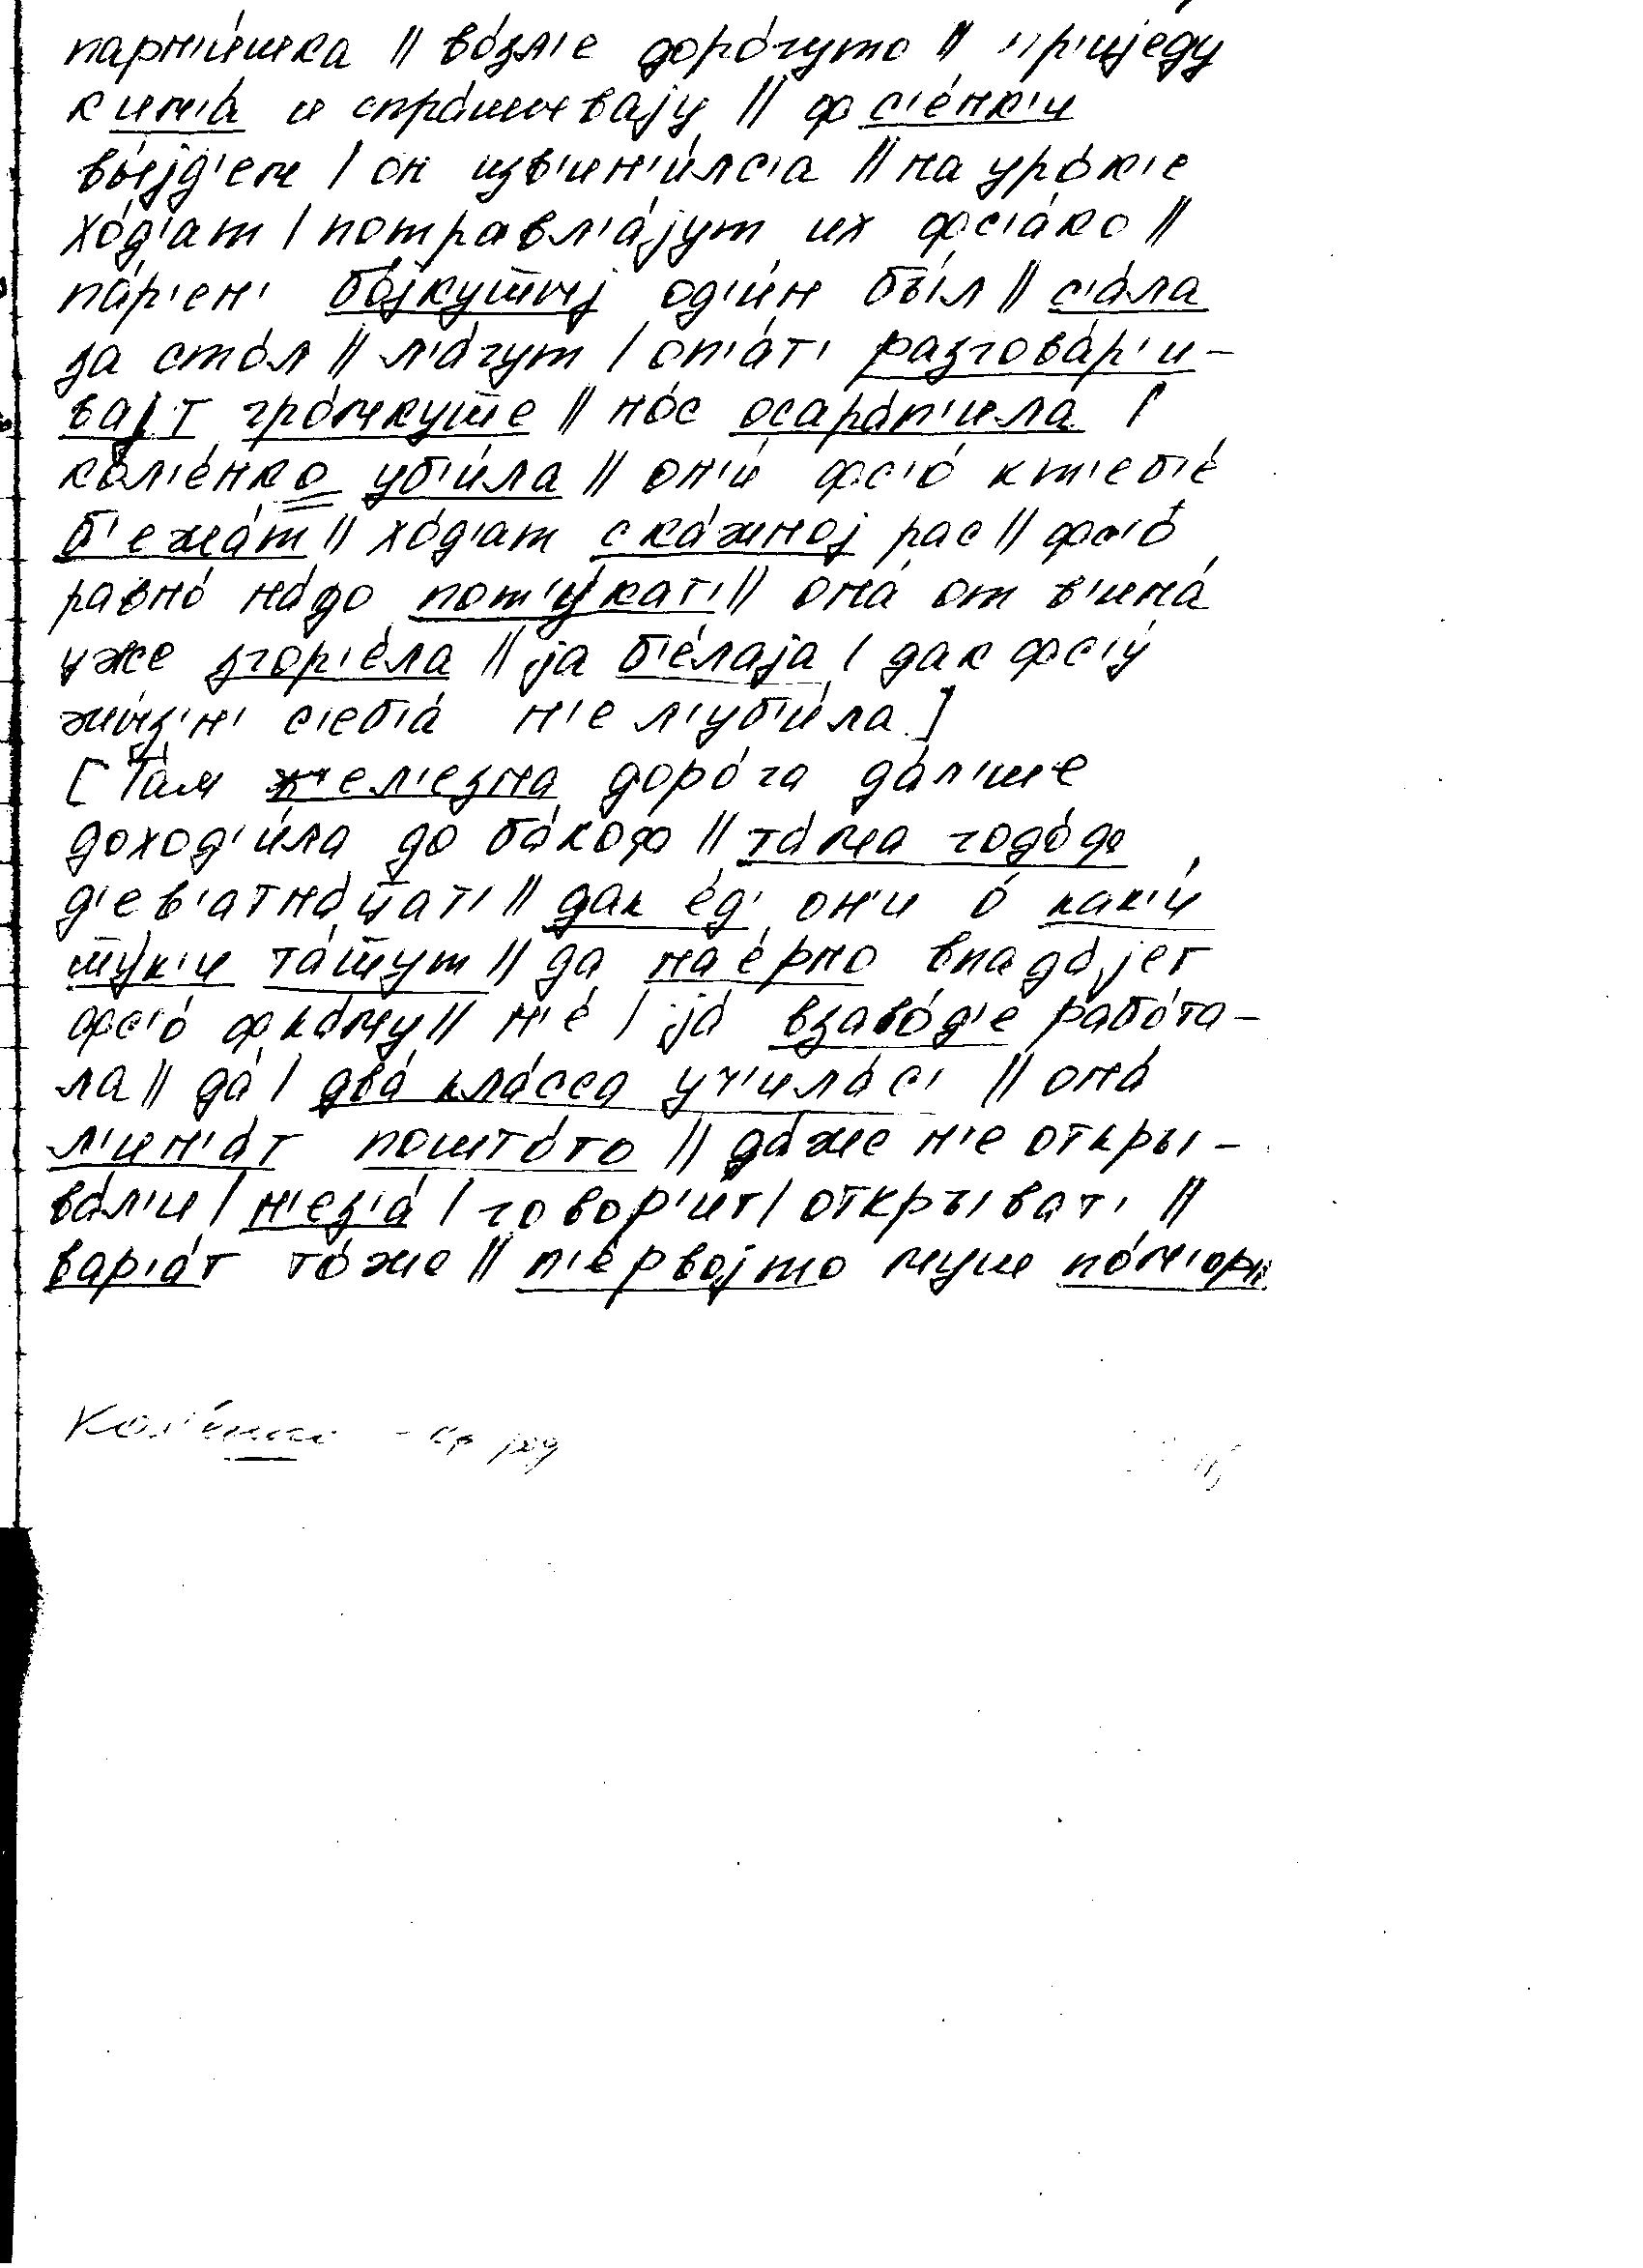 парн'и́шка || во́зл'е доро́гуто || пр'иједу
к ним'а́ и спра́шывају || ф с'е́нк'и
вы́јд'ем | он изв'ин'и́лс'а || на уро́к'е
хо́д'ат | потравл'а́јут их фс'а́ко ||
па́р'ен' бо́јкушчој од'и́н был || с'а́ла
за сто́л || л'а́гут | оп'а́т' разгова́р'и-
вајт гро́мкушче || но́с осара́п'ила |
кол'е́нко уб'и́ла || он'и́ фс'о́ к т'еб'е́
б'ежа́т || хо́д'ат ска́жној рас || фс'о́
равно́ на́до пот'у́кат' || она́ от в'ина́
уже згор'е́ла || ја б'е́лаја | дак фс'у́
жи́з'н' с'еб'а́ н'е л'уб'и́ла ]
[ Та́м жел'езна доро́га да́л'ше
доход'и́ла до ба́коф || та́ма годо́ф
д'ев'атна́цат' || дак ед' он'и о́ как'и́
шту́к'и та́шчут || да нае́рно впада́јет
фс'о́ ф ка́му || н'е́ | ја́ в заво́д'е рабо́та-
ла || да́ | два́ кла́сса уч'ила́с' || она́
л'ин'а́т пошто́то || да́же н'е откры-
ва́л'и | н'ез'а́ | говор'и́т | открыват' ||
вар'а́т то́же || п'е́рвојто муш по́м'ор
Кол'е́нко - ср род